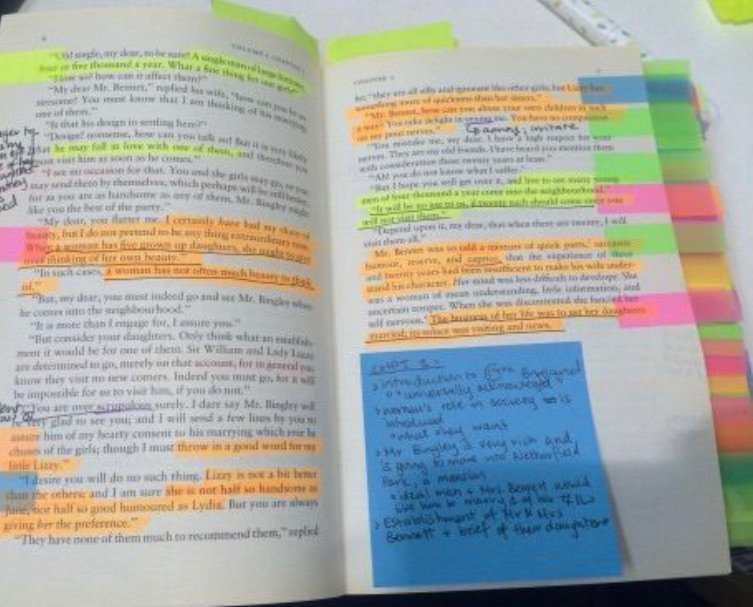 VOLUME I, CHAPTER 1
"Oh! single, my dear, to be sure! A single man of large fortune;
four or five thousand a year. What a fine thing for our girls!"
"How so? how can it affect them?"
"My dear Mr. Bennet," replied his wife, "how can you be so
tiresome! You must know that I am thinking of his marrying
one of them."
"Is that his design in settling here?"
"Design! nonsense, how can you talk so! But it is very likely
that he may fall in love with one of them, and therefore you
must visit him as soon as he comes."
"I see no occasion for that. You and the girls may go, or you
may send them by themselves, which perhaps will be still better,
for as you are as handsome as any of them, Mr. Bingley might
like you the best of the party."
"My dear, you flatter me. I certainly have had my share of
beauty, but I do not pretend to be any thing extraordinary now.
When a woman has five grown up daughters, she ought to give
over thinking of her own beauty."
"In such cases, a woman has not often much beauty to think
of."
"But, my dear, you must indeed go and see Mr. Bingley when
he comes into the neighbourhood."
"It is more than I engage for, I assure you."
"But consider your daughters. Only think what an establish-
ment it would be for one of them. Sir William and Lady Lucas
are determined to go, merely on that account, for in general you
know they visit no new comers. Indeed you must go, for it will
be impossible for us to visit him, if you do not."
"You are over scrupulous surely. I dare say Mr. Bingley will
be very glad to see you; and I will send a few lines by you to
assure him of my hearty consent to his marrying which ever he
chuses of the girls; though I must throw in a good word for my
little Lizzy."
"I desire you will do no such thing. Lizzy is not a bit better
than the others; and I am sure she is not half so handsome as
Jane, nor half so good humoured as Lydia. But you are always
giving her the preference."
"They have none of them much to recommend them," replied
CHAPTER 1
he; "they are all silly and ignorant like other girls; but Lizzy has
something more of quickness than her sisters."
"Mr. Bennet, how can you abuse your own children in such
a way? You take delight in vexing me. You have no compassion
on my poor nerves."
annoying, irritate
"You mistake me, my dear. I have a high respect for your
nerves. They are my old friends. I have heard you mention them
with consideration these twenty years at least."
"Ah! you do not know what I suffer."
"But I hope you will get over it, and live to see many young
men of four thousand a year come into the neighbourhood."
"It will be no use to us, if twenty such should come since you
will not visit them."
"Depend upon it, my dear, that when there are twenty, I will
visit them all."
Mr. Bennet was so odd a mixture of quick parts, sarcastic
humour, reserve, and caprice, that the experience of three
and twenty years had been insufficient to make his wife under-
stand his character. Her mind was less difficult to develope. She
was a woman of mean understanding, little information, and
uncertain temper. When she was discontented she fancied her-
self nervous. The business of her life was to get her daughters
married; its solace was visiting and news.
> introduction to England
"universally acknowledged"
> woman's role in society is
introduced
what they want
> Mr Bingley is very rich and
is going to move into Netherfield
Park, a mansion
ideal man + Mrs Bennett would
like him to marry 1 of her
> Establishment of Mr & Mrs
Bennett + brief of their daughters